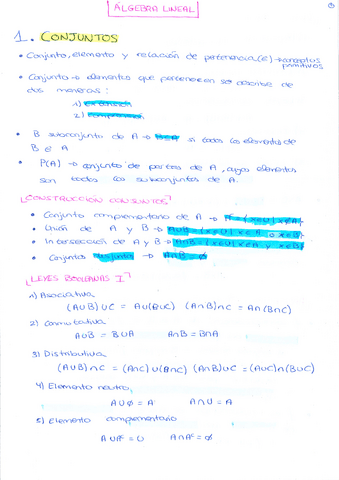 ÁLGEBRA LINEAL
1. CONJUNTOS
• Conjunto, elemento y relación de pertenencia (∈) → conceptos primitivos
• Conjunto → elementos que pertenecen se describe de
dos maneras:
1) extensión
2) comprensión
• B subconjunto de A → B⊂A si todos los elementos de
B ∈ A
• P(A) → conjunto de partes de A, cuyos elementos
son todos los subconjuntos de A.
CONSTRUCCIÓN CONJUNTOS
• Conjunto complementario de A → Aᶜ = {x∈U | x∉A}
• Unión de A y B → A∪B = {x∈U | x∈A o x∈B}
• Intersección de A y B → A∩B = {x∈U | x∈A y x∈B}
• Conjuntos disjuntos → A∩B = ∅
LEYES BOOLEANAS I
1) Asociativa
(A∪B)∪C = A∪(B∪C) (A∩B)∩C = A∩(B∩C)
2) Conmutativa
A∪B = B∪A A∩B = B∩A
3) Distributiva
(A∪B)∩C = (A∩C)∪(B∩C) (A∩B)∪C = (A∪C)∩(B∪C)
4) Elemento neutro
A∪∅ = A A∩U = A
5) Elemento complementario
A∪Aᶜ = U A∩Aᶜ = ∅